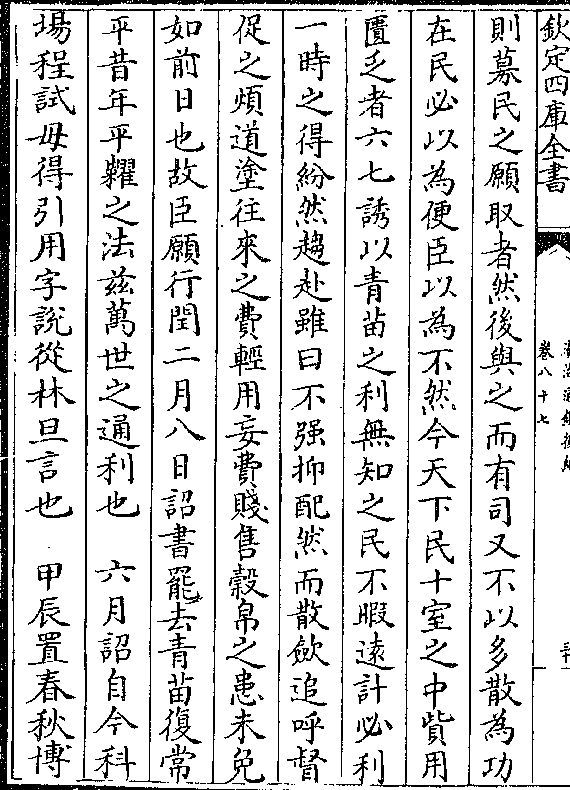 欽定四庫全書
卷八十七
則募民之願取者然後與之而有司又不以多散為功
在民必以為便臣以為不然今天下民十室之中貲用
匱乏者六七誘以青苗之利無知之民不暇遠計必利
一時之得紛然趨赴雖曰不强抑配然而散斂追呼督
促之煩道塗往來之費輕用妄費賤售穀帛之患未免
如前日也故臣願行閏二月八日詔書罷去青苗復常
平昔年平糶之法兹萬世之通利也 六月詔自今科
場程試毋得引用字說從林旦言也 甲辰置春秋博